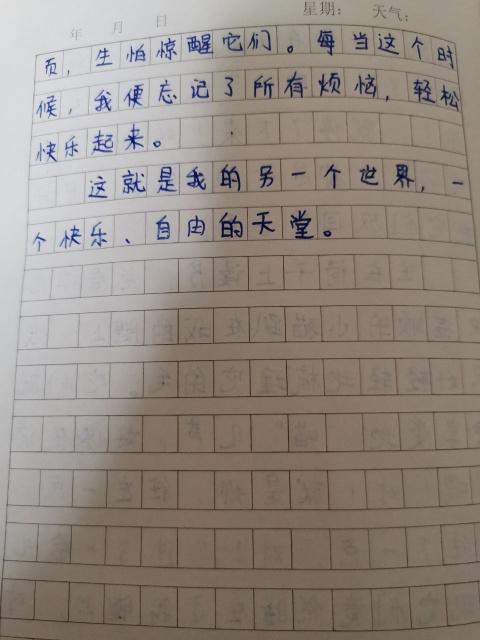 年 月 日 星期: 天气:
页,生怕惊醒它们。每当这个时
候,我便忘记了所有烦恼,轻松
快乐起来。
这就是我的另一个世界,一
个快乐、自由的天堂。